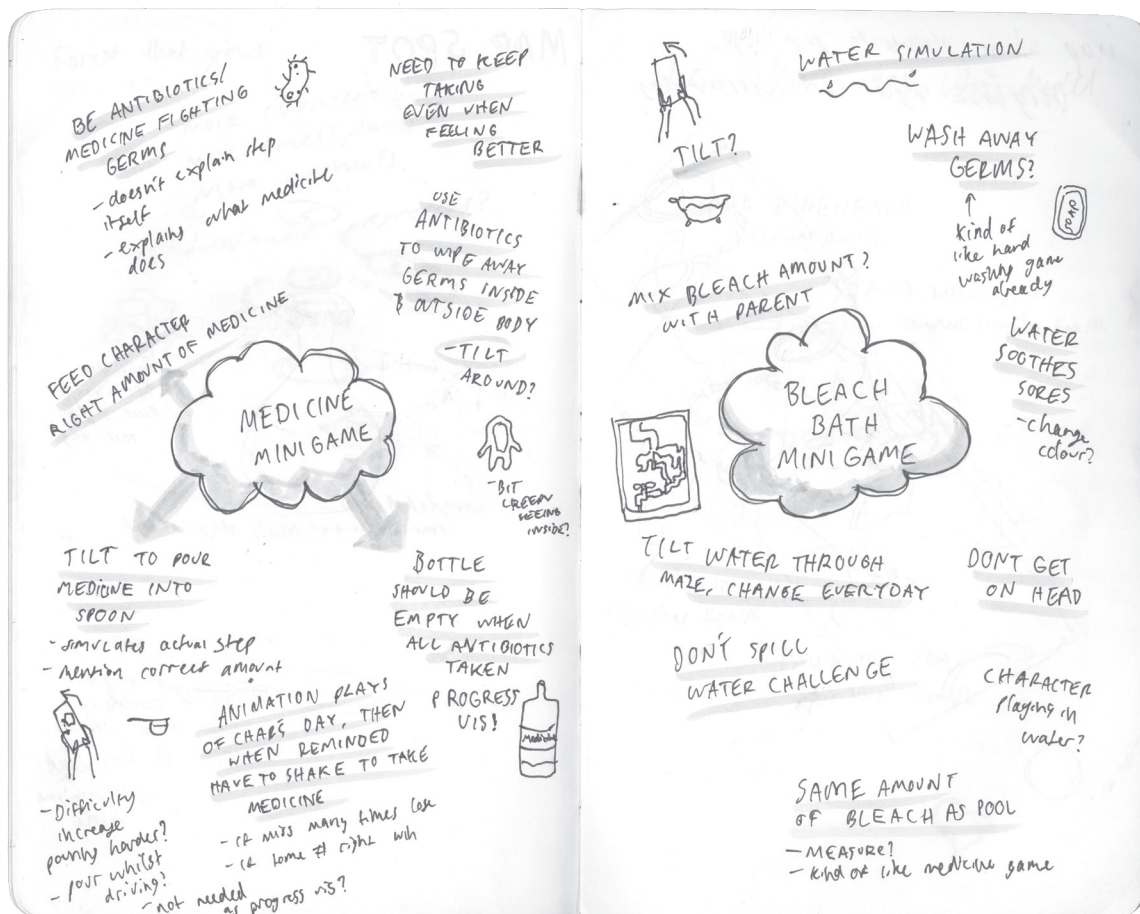 BE ANTIBIOTICS/
MEDICINE FIGHTING
GERMS
- doesn't explain step
itself
- explains what medicine
does
NEED TO KEEP
TAKING
EVEN WHEN
FEELING
BETTER
USE
ANTIBIOTICS
TO WIPE AWAY
GERMS INSIDE
& OUTSIDE BODY
- TILT
AROUND?
FEED CHARACTER
RIGHT AMOUNT OF MEDICINE
MEDICINE
MINIGAME
- BIT
CREEPY
SEEING
INSIDE?
TILT TO POUR
MEDICINE INTO
SPOON
- simulates actual step
- mention correct amount
BOTTLE
SHOULD BE
EMPTY WHEN
ALL ANTIBIOTICS
TAKEN
PROGRESS
VIS!
Medicine
ANIMATION PLAYS
OF CHAR'S DAY, THEN
WHEN REMINDED
HAVE TO SHAKE TO TAKE
MEDICINE
- if miss many times lose
- if some # right win
- Difficulty
increase
pouring harder?
- pour whilst
driving?
- not needed
as progress vis?
WATER SIMULATION
TILT?
WASH AWAY
GERMS?
kind of
like hand
washing game
already
SOAP
MIX BLEACH AMOUNT?
WITH PARENT
WATER
SOOTHES
SORES
- change
colour?
BLEACH
BATH
MINIGAME
TILT WATER THROUGH
MAZE, CHANGE EVERYDAY
DONT GET
ON HEAD
DON'T SPILL
WATER CHALLENGE
CHARACTER
playing in
water?
SAME AMOUNT
OF BLEACH AS POOL
- MEASURE?
- kind of like medicine game